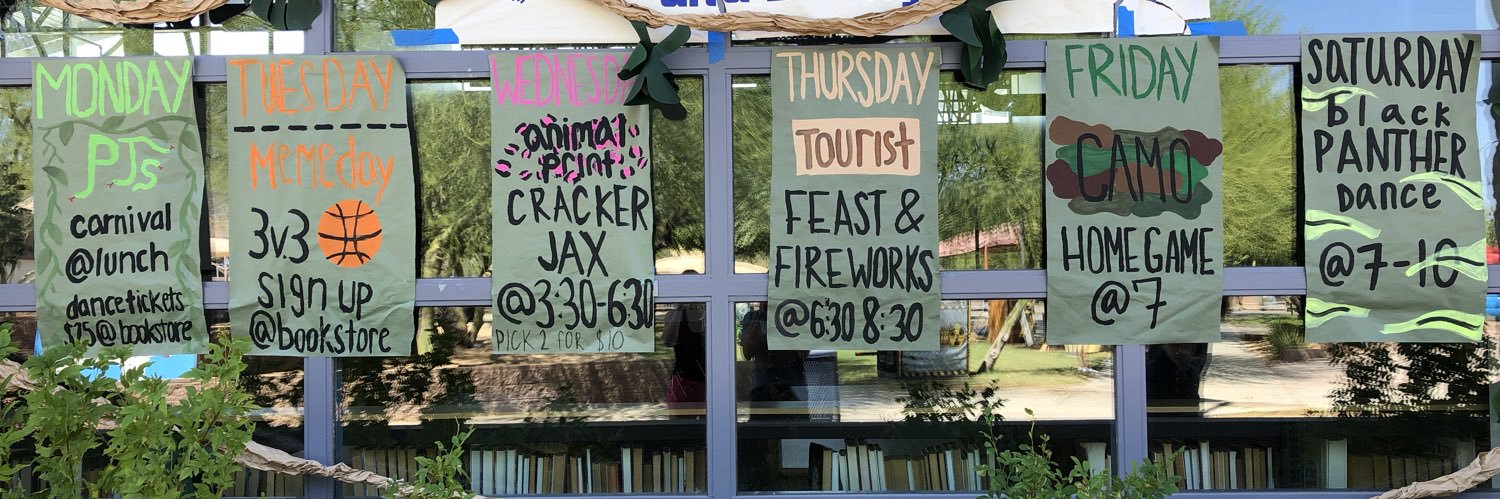 MONDAY
PJs
carnival
@lunch
dance tickets
$25@bookstore
TUESDAY
Memeday
3v.3
sign up
@bookstore
WEDNESDA
animal
print
CRACKER
JAX
@3:30-6:30
PICK 2 FOR $10
THURSDAY
Tourist
FEAST &
FIREWORKS
@6:30 8:30
FRIDAY
CAMO
HOME GAME
@7
SATURDAY
black
PANTHER
Dance
@7-10